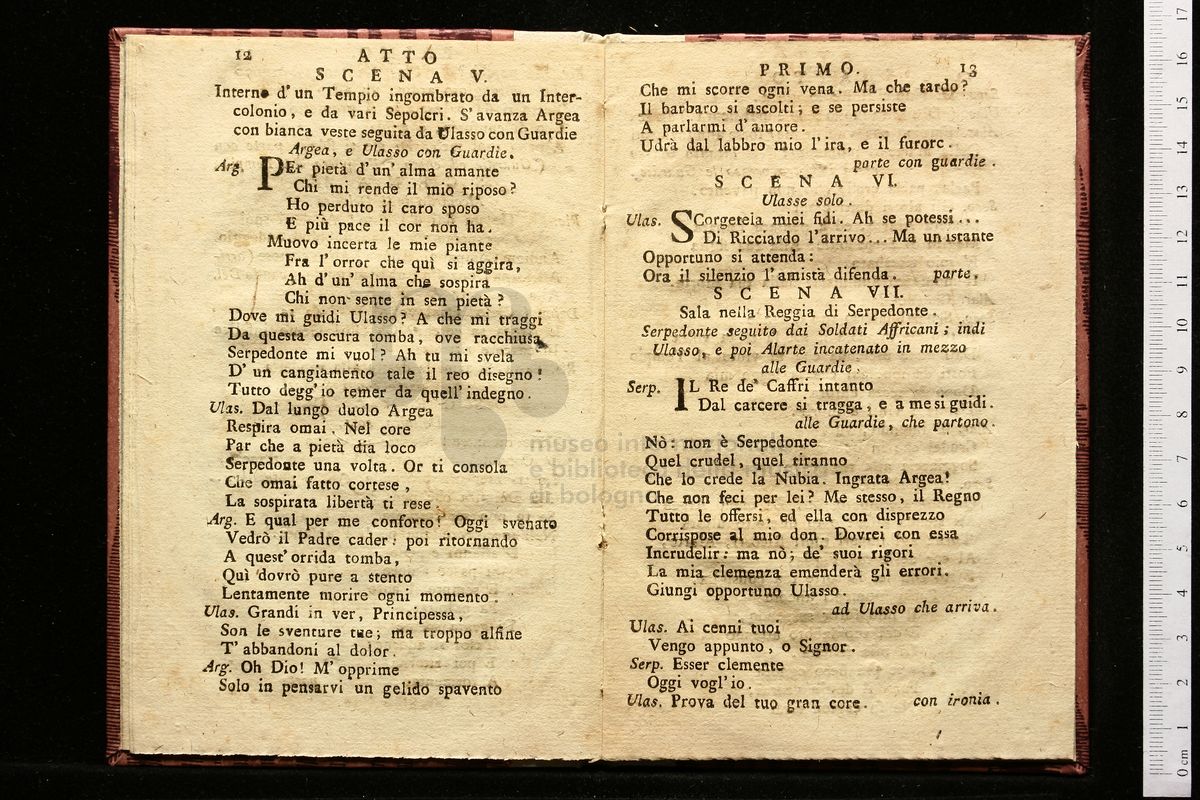 12 ATTO
SCENA V.
Interno d'un Tempio ingombrato da un Inter-
colonio, e da vari Sepolcri. S'avanza Argea
con bianca veste seguita da Ulasso con Guardie
Argea, e Ulasso con Guardie.
Arg. PEr pietà d'un'alma amante
Chi mi rende il mio riposo?
Ho perduto il caro sposo
E più pace il cor non ha.
Muovo incerta le mie piante
Fra l'orror che quì si aggira,
Ah d'un'alma che sospira
Chi non sente in sen pietà?
Dove mi guidi Ulasso? A che mi traggi
Da questa oscura tomba, ove racchiusa
Serpedonte mi vuol? Ah tu mi svela
D'un cangiamento tale il reo disegno!
Tutto degg'io temer da quell'indegno.
Ulas. Dal lungo duolo Argea
Respira omai. Nel core
Par che a pietà dia loco
Serpedonte una volta. Or ti consola
Che omai fatto cortese,
La sospirata libertà ti rese.
Arg. E qual per me conforto! Oggi svenato
Vedrò il Padre cader: poi ritornando
A quest'orrida tomba,
Quì dovrò pure a stento
Lentamente morire ogni momento.
Ulas. Grandi in ver, Principessa,
Son le sventure tue; ma troppo alfine
T'abbandoni al dolor.
Arg. Oh Dio! M'opprime
Solo in pensarvi un gelido spavento
PRIMO. 13
Che mi scorre ogni vena. Ma che tardo?
Il barbaro si ascolti; e se persiste
A parlarmi d'amore.
Udrà dal labbro mio l'ira, e il furore.
parte con guardie.
SCENA VI.
Ulasse solo.
Ulas. SCorgetela miei fidi. Ah se potessi...
Di Ricciardo l'arrivo... Ma un istante
Opportuno si attenda:
Ora il silenzio l'amistà difenda. parte.
SCENA VII.
Sala nella Reggia di Serpedonte.
Serpedonte seguito dai Soldati Affricani; indi
Ulasso, e poi Alarte incatenato in mezzo
alle Guardie.
Serp. IL Re de' Caffri intanto
Dal carcere si tragga, e a me si guidi.
alle Guardie, che partono.
Nò: non è Serpedonte
Quel crudel, quel tiranno
Che lo crede la Nubia. Ingrata Argea!
Che non feci per lei? Me stesso, il Regno
Tutto le offersi, ed ella con disprezzo
Corrispose al mio don. Dovrei con essa
Incrudelir: ma nò; de' suoi rigori
La mia clemenza emenderà gli errori.
Giungi opportuno Ulasso.
ad Ulasso che arriva.
Ulas. Ai cenni tuoi
Vengo appunto, o Signor.
Serp. Esser clemente
Oggi vogl'io.
Ulas. Prova del tuo gran core. con ironia.
museo
e biblioteca
di bologna
0 cm 1 2 3 4 5 6 7 8 9 10 11 12 13 14 15 16 17